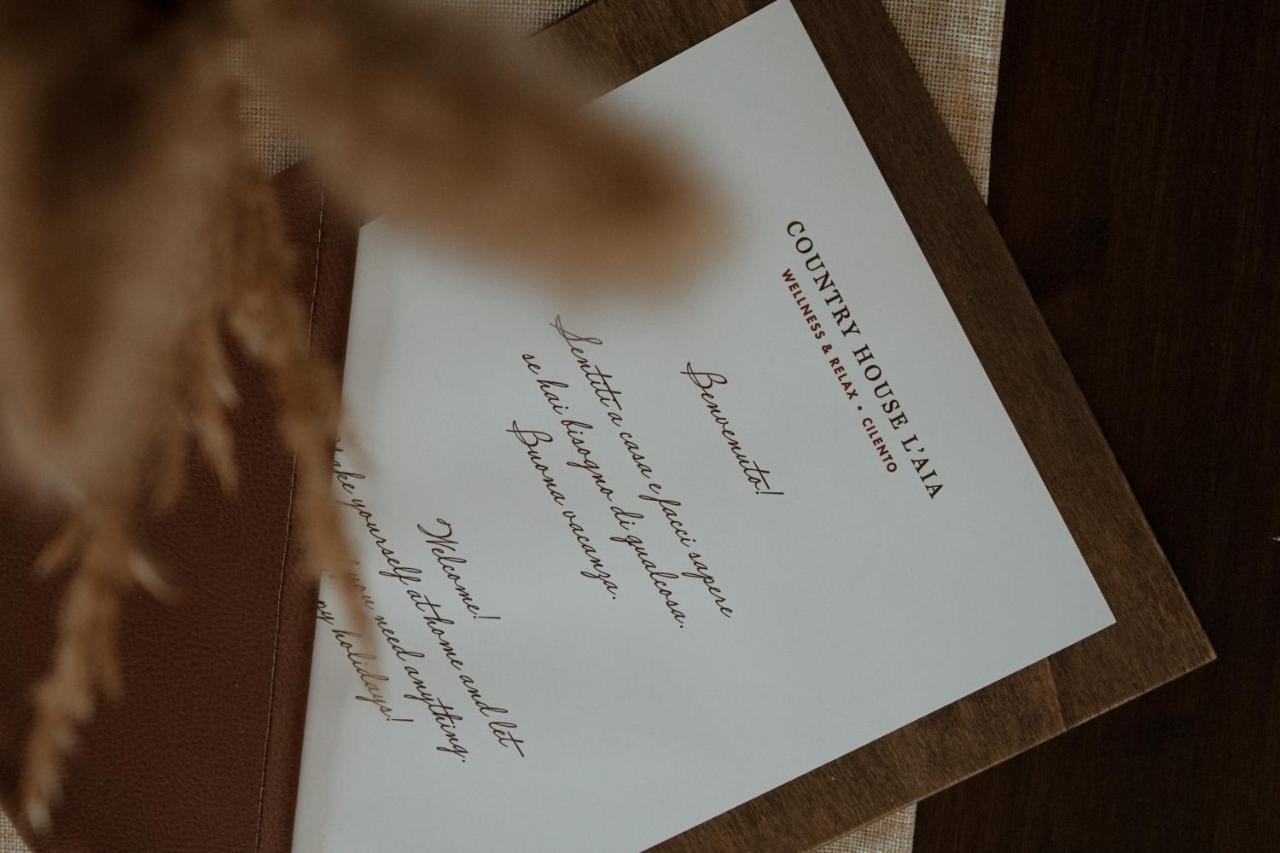 COUNTRY HOUSE L'AIA
WELLNESS & RELAX • CILENTO
Benvenuto!
Sentiti a casa e facci sapere
se hai bisogno di qualcosa.
Buona vacanza.
Welcome!
yourself at home and let
you need anything.
holidays!